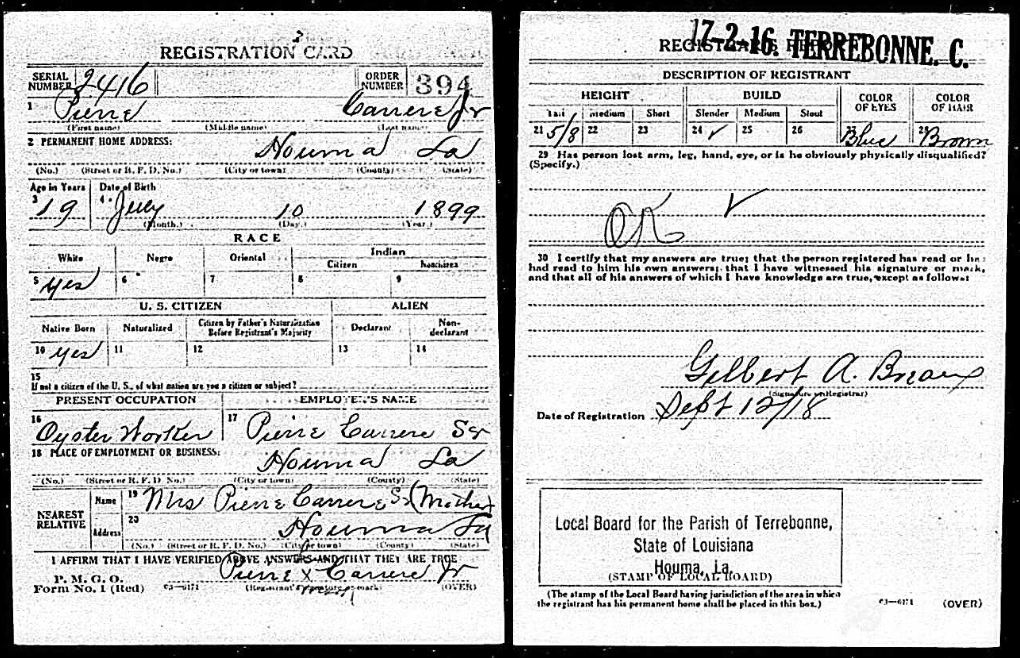 3
REGISTRATION CARD
SERIAL NUMBER 2416 ORDER NUMBER 394
1 Pierre Carrere Jr
(First name) (Middle name) (Last name)
2 PERMANENT HOME ADDRESS:
Houma La
(No.) (Street or R. F. D. No.) (City or town) (County) (State)
Age in Years Date of Birth
3 19 4 July 10 1899
(Month.) (Day.) (Year.)
RACE
White Negro Oriental Indian
Citizen Noncitizen
5 yes 6 7 8 9
U. S. CITIZEN ALIEN
Native Born Naturalized Citizen by Father's Naturalization Before Registrant's Majority Declarant Non-declarant
10 yes 11 12 13 14
15
If not a citizen of the U. S., of what nation are you a citizen or subject?
PRESENT OCCUPATION EMPLOYER'S NAME
16 Oyster Worker 17 Pierre Carrere Sr
18 PLACE OF EMPLOYMENT OR BUSINESS:
Houma La
(No.) (Street or R. F. D. No.) (City or town) (County) (State)
NEAREST RELATIVE Name 19 Mrs Pierre Carrere Sr (Mother)
Address 20 Houma La
(No.) (Street or R. F. D. No.) (City or town) (County) (State)
I AFFIRM THAT I HAVE VERIFIED ABOVE ANSWERS AND THAT THEY ARE TRUE
P. M. G. O.
Form No. 1 (Red) 03—6171 Pierre X Carrere Jr
(Registrant's signature or mark) (OVER)
17-2-16. TERREBONNE. C.
DESCRIPTION OF REGISTRANT
HEIGHT BUILD COLOR OF EYES COLOR OF HAIR
Tall Medium Short Slender Medium Stout
21 5/8 22 23 24 ✓ 25 26 27 Blue 28 Brown
29 Has person lost arm, leg, hand, eye, or is he obviously physically disqualified?
(Specify.)
OK ✓
30 I certify that my answers are true; that the person registered has read or has
had read to him his own answers; that I have witnessed his signature or mark,
and that all of his answers of which I have knowledge are true, except as follows:
Gilbert A. Breaux
(Signature of Registrar)
Date of Registration Sept 12/18
Local Board for the Parish of Terrebonne,
State of Louisiana
Houma, La.
(STAMP OF LOCAL BOARD)
(The stamp of the Local Board having jurisdiction of the area in which
the registrant has his permanent home shall be placed in this box.)
03—6171 (OVER)